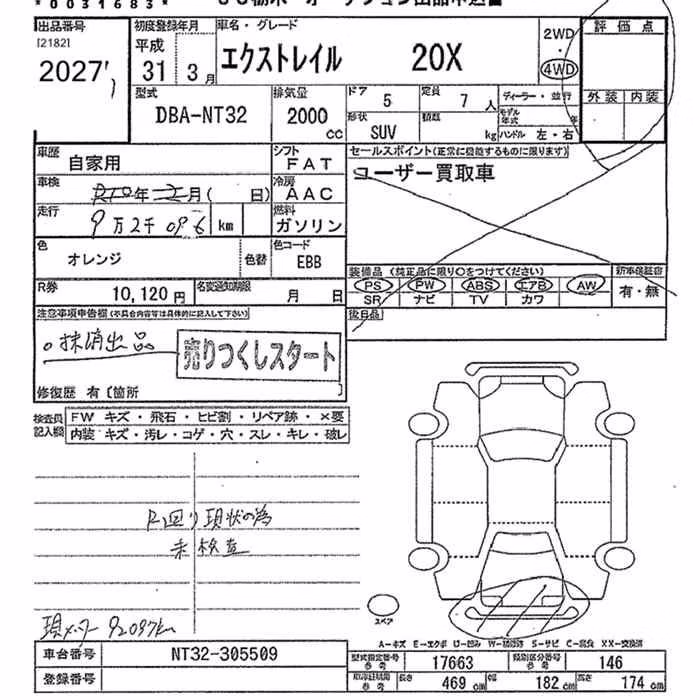 *0031683*
出品番号 初度登録年月 車名・グレード 2WD 評価点
[2182] 平成 ・
2027 31年 3月 エクストレイル 20X 4WD
型式 排気量 ドア 5 定員 7人 ディーラー・並行 外装 内装
DBA-NT32 2000cc 形状 SUV 積載 kg モデル年式 年 ハンドル 左・右
車歴 自家用 シフト FAT セールスポイント(正常に機能するものに限ります)
車検 年 月( 日) 冷房 AAC ユーザー買取車
走行 9万2千 km 燃料 ガソリン
色 オレンジ 色替 色コード EBB
装備品 (純正品に限り○をつけてください) 新車保証書
R券 10,120円 名変通知期限 月 日 PS PW ABS エアB AW 有・無
SR ナビ TV カワ
注意事項申告欄(不具合内容等は具体的に記入して下さい) 後日品
。抹消出品 売りつくしスタート
修復歴 有〔箇所
検査員 FW キズ・飛石・ヒビ割・リペア跡・×要
記入欄 内装 キズ・汚レ・コゲ・穴・スレ・キレ・破レ
R回り現状の為
未検査
現メーター 92097km
スペア
A-キズ E-エクボ U-凹み W-補修跡 S-サビ C-腐食 XX-交換済
車台番号 NT32-305509 型式指定番号 参考 17663 類別区分番号 参考 146
登録番号 参考 長さ 469cm 幅 182cm 高さ 174cm